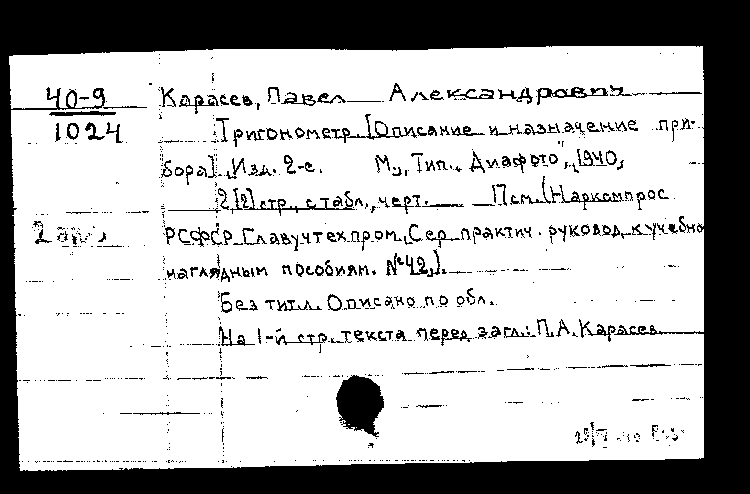 40-9
1024
Карасев, Павел Александрович
Тригонометр. [Описание и назначение при-
бора]. Изд. 2-е. М., Тип. "Диафото", 1940,
2, [2] стр., с табл., черт. Псм. (Наркомпрос
РСФСР Главучтехпром. Сер. практич. руковод. к учебно
наглядным пособиям. №42,).
2
Без титл. Описано по обл.
На 1-й стр. текста перед загл.: П.А. Карасев.